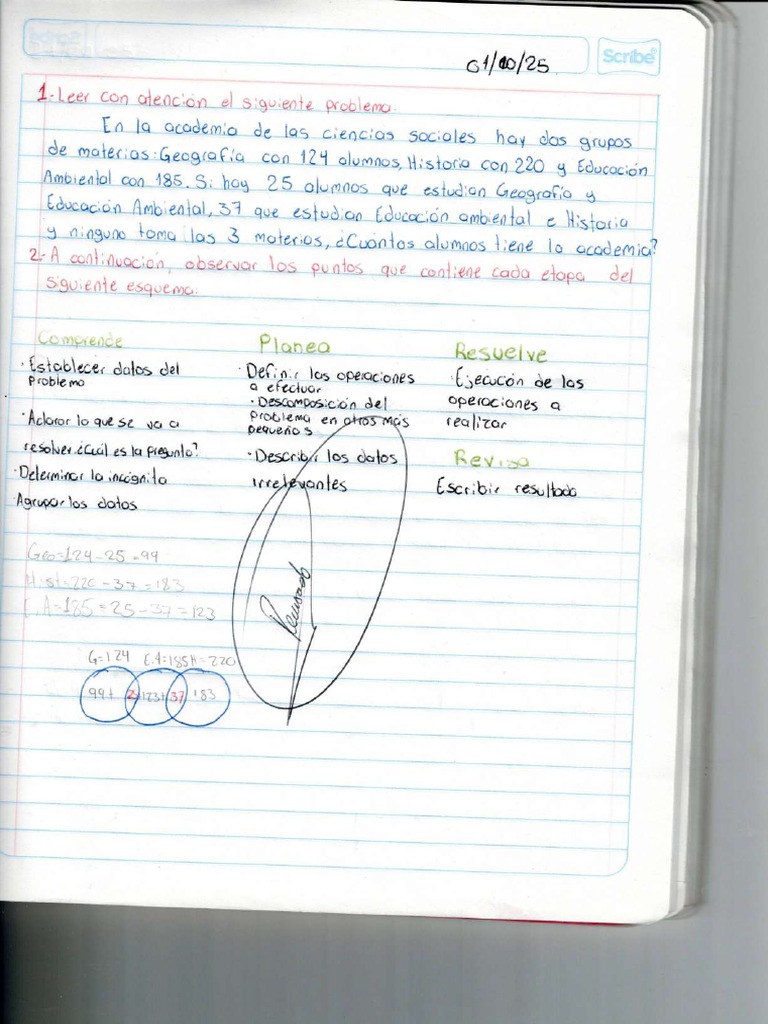 Scribe
01/10/25
1.-Leer con atención el siguiente problema.
En la academia de las ciencias sociales hay dos grupos
de materias: Geografía con 124 alumnos, Historia con 220 y Educación
Ambiental con 185. Si hay 25 alumnos que estudian Geografía y
Educación Ambiental, 37 que estudian Educación ambiental e Historia
y ninguno toma las 3 materias, ¿Cuántos alumnos tiene la academia?
2.-A continuación, observar los puntos que contiene cada etapa del
siguiente esquema.
Comprende
·Establecer datos del
problema
·Aclarar lo que se va a
resolver ¿Cuál es la pregunta?
·Determinar la incógnita
·Agrupar los datos
Planea
·Definir las operaciones
a efectuar
·Descomposición del
problema en otros más
pequeños
·Describir los datos
irrelevantes
Resuelve
·Ejecución de las
operaciones a
realizar
Revisa
Escribir resultado
Geo=124-25=99
Hist=220-37=183
E.A=185=25-37=123
Revisado
G=124 E.A=185 H=220
99+ 25+123+ 37 183